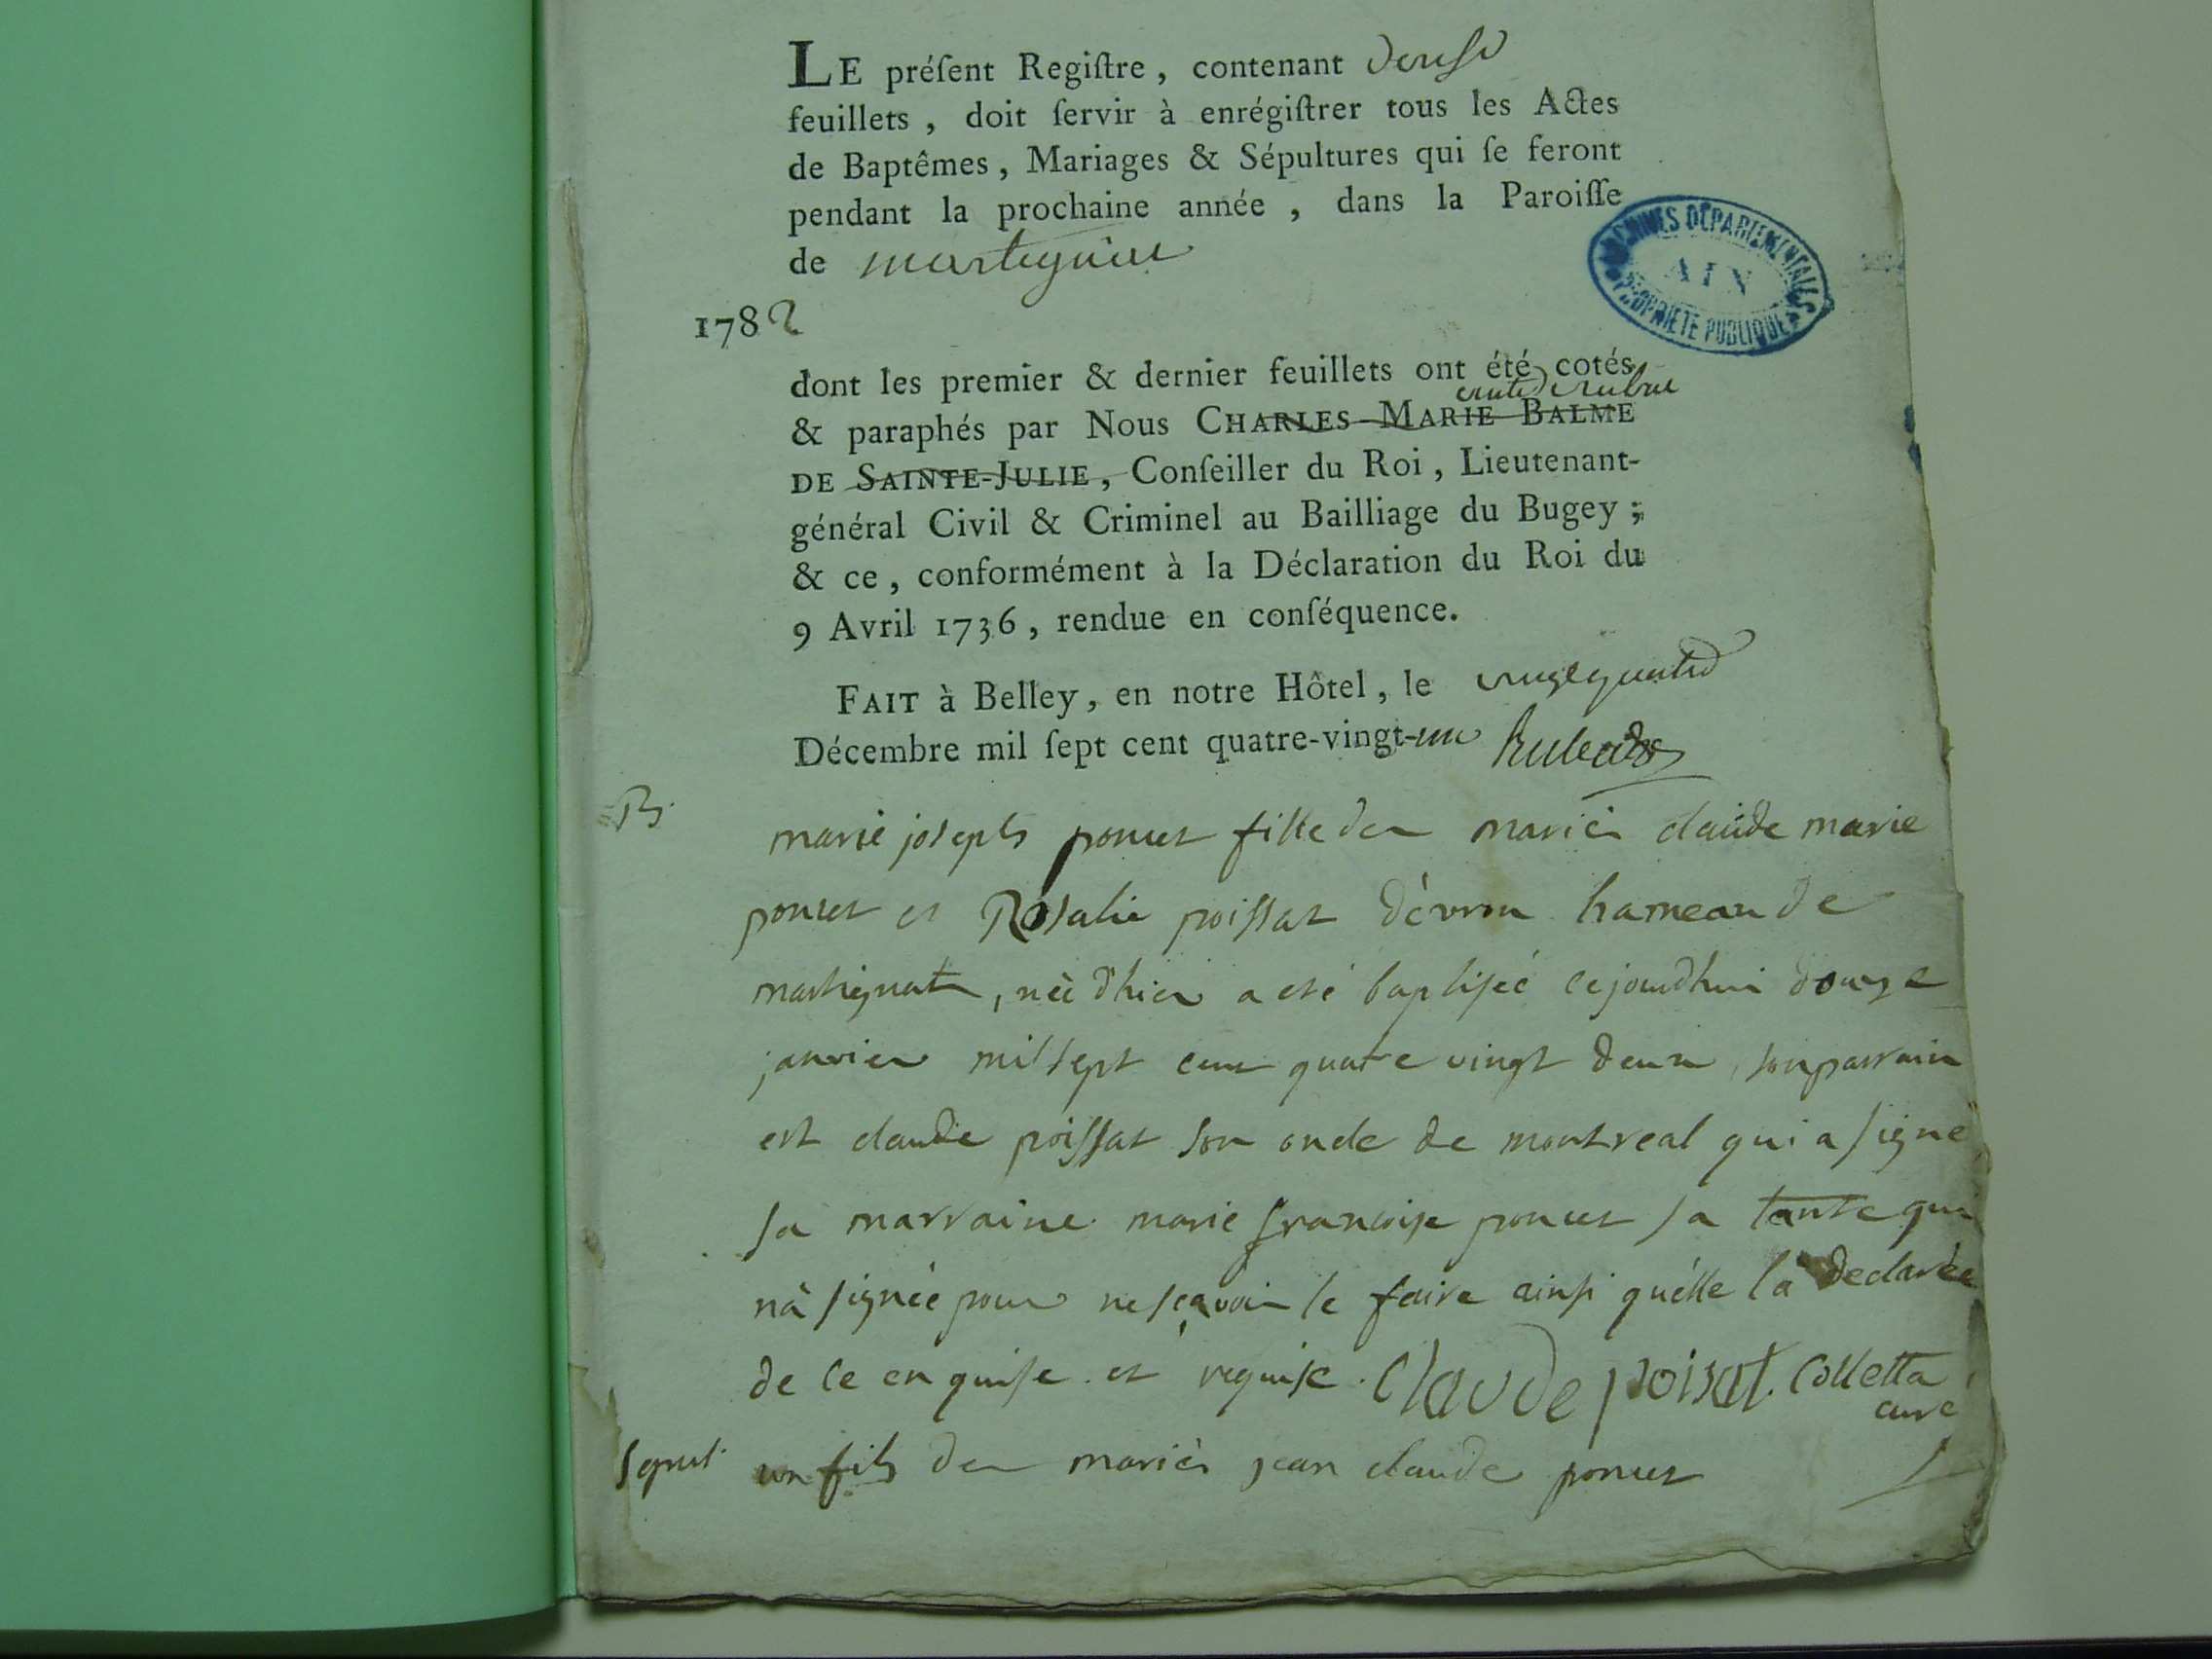 LE préſent Regiſtre, contenant
feuillets, doit ſervir à enrégiſtrer tous les Actes
de Baptêmes, Mariages & Sépultures qui ſe feront
pendant la prochaine année, dans la Paroiſſe
de
ARCHIVES DÉPARTEMENTALES
AIN
PROPRIÉTÉ PUBLIQUE
1782
dont les premier & dernier feuillets ont été cotés
& paraphés par Nous CHARLES-MARIE BALME
DE SAINTE-JULIE, Conſeiller du Roi, Lieutenant-
général Civil & Criminel au Bailliage du Bugey;
& ce, conformément à la Déclaration du Roi du
9 Avril 1736, rendue en conſéquence.
FAIT à Belley, en notre Hôtel, le vingt quatre
Décembre mil ſept cent quatre-vingt-un
B.
marie joseph poncet fille des mariés claude marie
poncet et Rosalie poissat d'évron hameau de
martignat, née d'hier a eté baptisée cejourdhui douze
janvier mil sept cent quatre vingt deux, son parrain
est claude poissat son oncle de montreal qui a signé
sa marraine marie francoise poncet sa tante qui
n'a signée pour ne sçavoir le faire ainsi qu'elle l'a declarée
de ce enquise et requise. claude poisat. Colletta
curé
sepult. un fils des mariés jean claude poncet